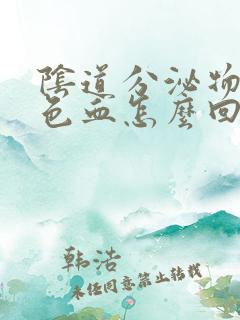 陰道分泌物
色血怎麼回
韩浩
未经同意禁止转载